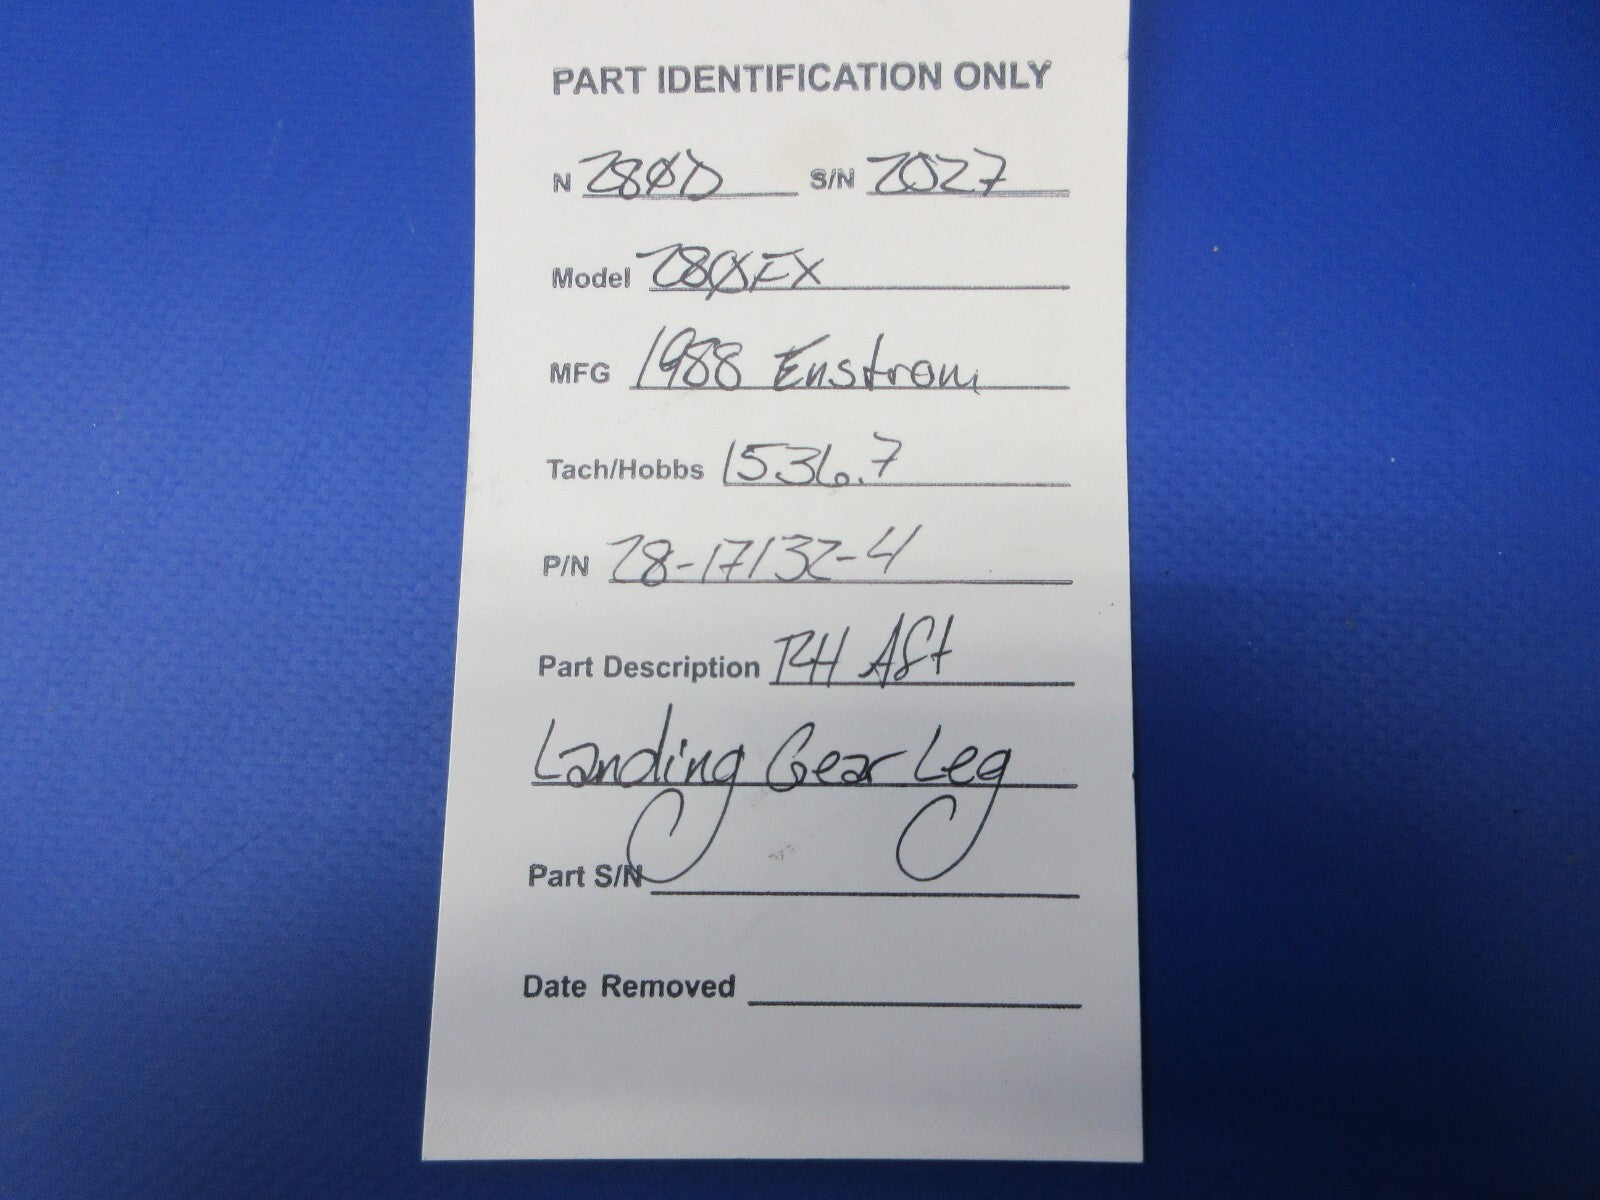 PART IDENTIFICATION ONLY
N 280D S/N 2027
Model 280FX
MFG 1988 Enstrom
Tach/Hobbs 1536.7
P/N 28-17132-4
Part Description RH Aft
Landing Gear Leg
Part S/N
Date Removed